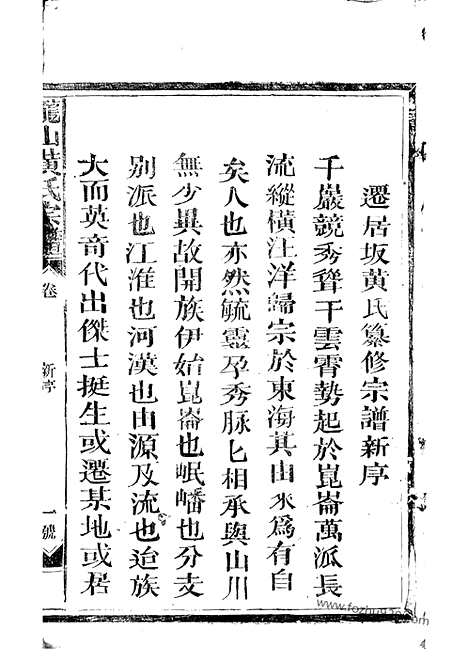 遷居坂黃氏纂修宗譜新序
千巖競秀聳干雲霄勢起於崑崙萬派長
流縱橫汪洋歸宗於東海其由來爲有自
矣人也亦然毓靈孕秀脉匕相承與山川
無少異故開族伊始崑崙也岷嶓也分支
別派也江淮也河漢也由源及流也迨族
大而英奇代出傑士挺生或遷某地或居
龍山黃氏宗譜 卷 新序 一號